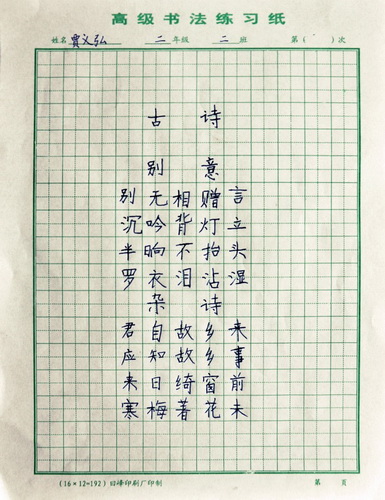 高级书法练习纸
姓名 贾义弘 二 年级 二 班 第( )次
古诗
别意
别无相赠言
沉吟背灯立
半晌不抬头
罗衣泪沾湿
杂诗
君自故乡来
应知故乡事
来日绮窗前
寒梅著花未
(16×12=192) 峰印刷厂印制 第 页